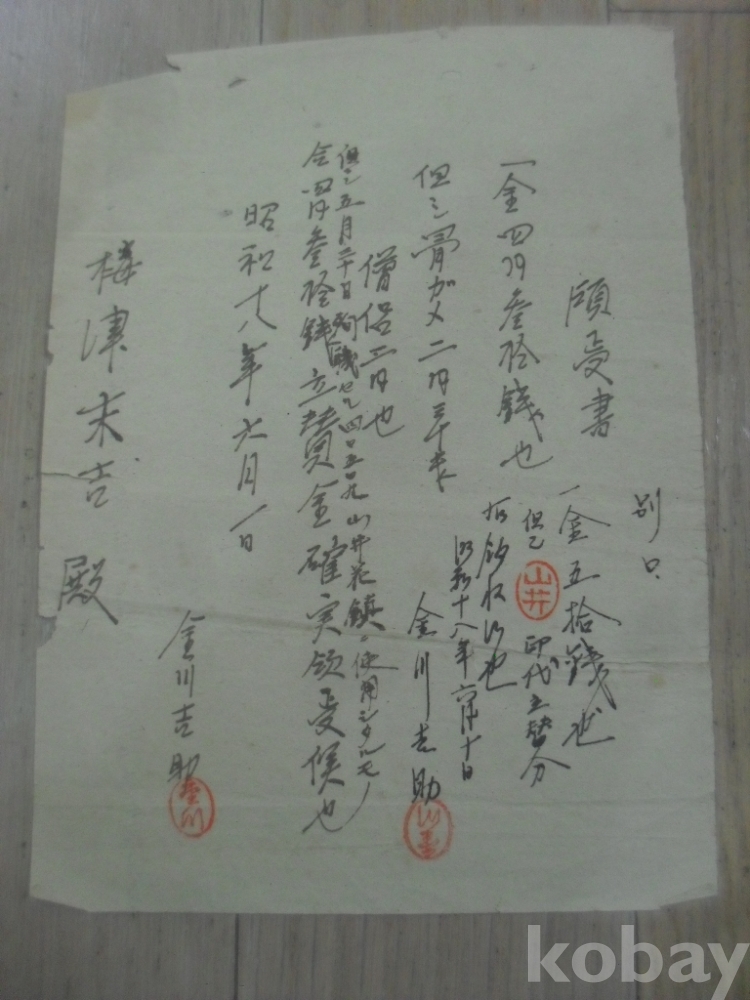 領受書
一金四円参拾銭也
但シ骨ガメ二円三十銭
僧侶二円也
但シ五月三十日死亡セシ四〇五〇九山井花鎮ニ使用シタルモノ
金四円参拾銭立替金確実領受候也
昭和十八年六月一日
金川吉助
梅津末吉 殿
別口
一金五拾銭也
但シ 山井 印代立替分
右領収候也
昭和十八年六月十日
金川吉助
kobay